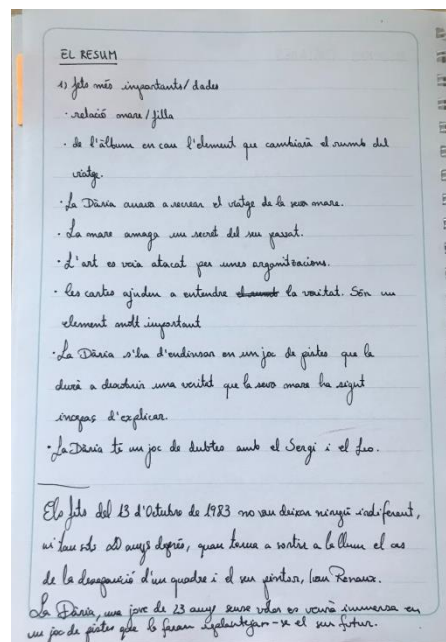 EL RESUM
1) fets més importants/dades
· relació mare/filla
· de l'àlbum en cau l'element que canviarà el rumb del
viatge.
· La Dària anava a recrear el viatge de la seva mare.
· La mare amaga un secret del seu passat.
· L'art es veia atacat per unes organitzacions.
· Les cartes ajuden a entendre la veritat. Són un
element molt important
· La Dària s'ha d'endinsar en un joc de pistes que la
durà a descobrir una veritat que la seva mare ha sigut
incapaç d'explicar.
· La Dària té un joc de dubtes amb el Sergi i el Leo.
Els fets del 13 d'Octubre de 1983 no van deixar ningú indiferent,
ni tan sols anys després, quan torna a sortir a la llum el cas
de la desaparició d'un quadre i el seu pintor, Renaux.
La Dària, una jove de 23 anys sense es veurà immersa en
un joc de pistes que la faran -se el seu futur.